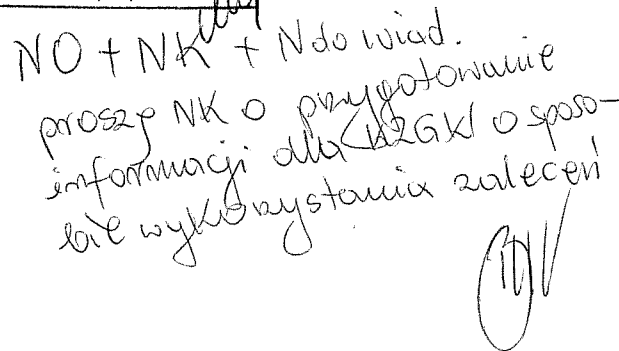 NO + NK + N do wiad.
proszę NK o przygotowanie
informacji dla KZGK o sposo-
bie wykorzystania zaleceń